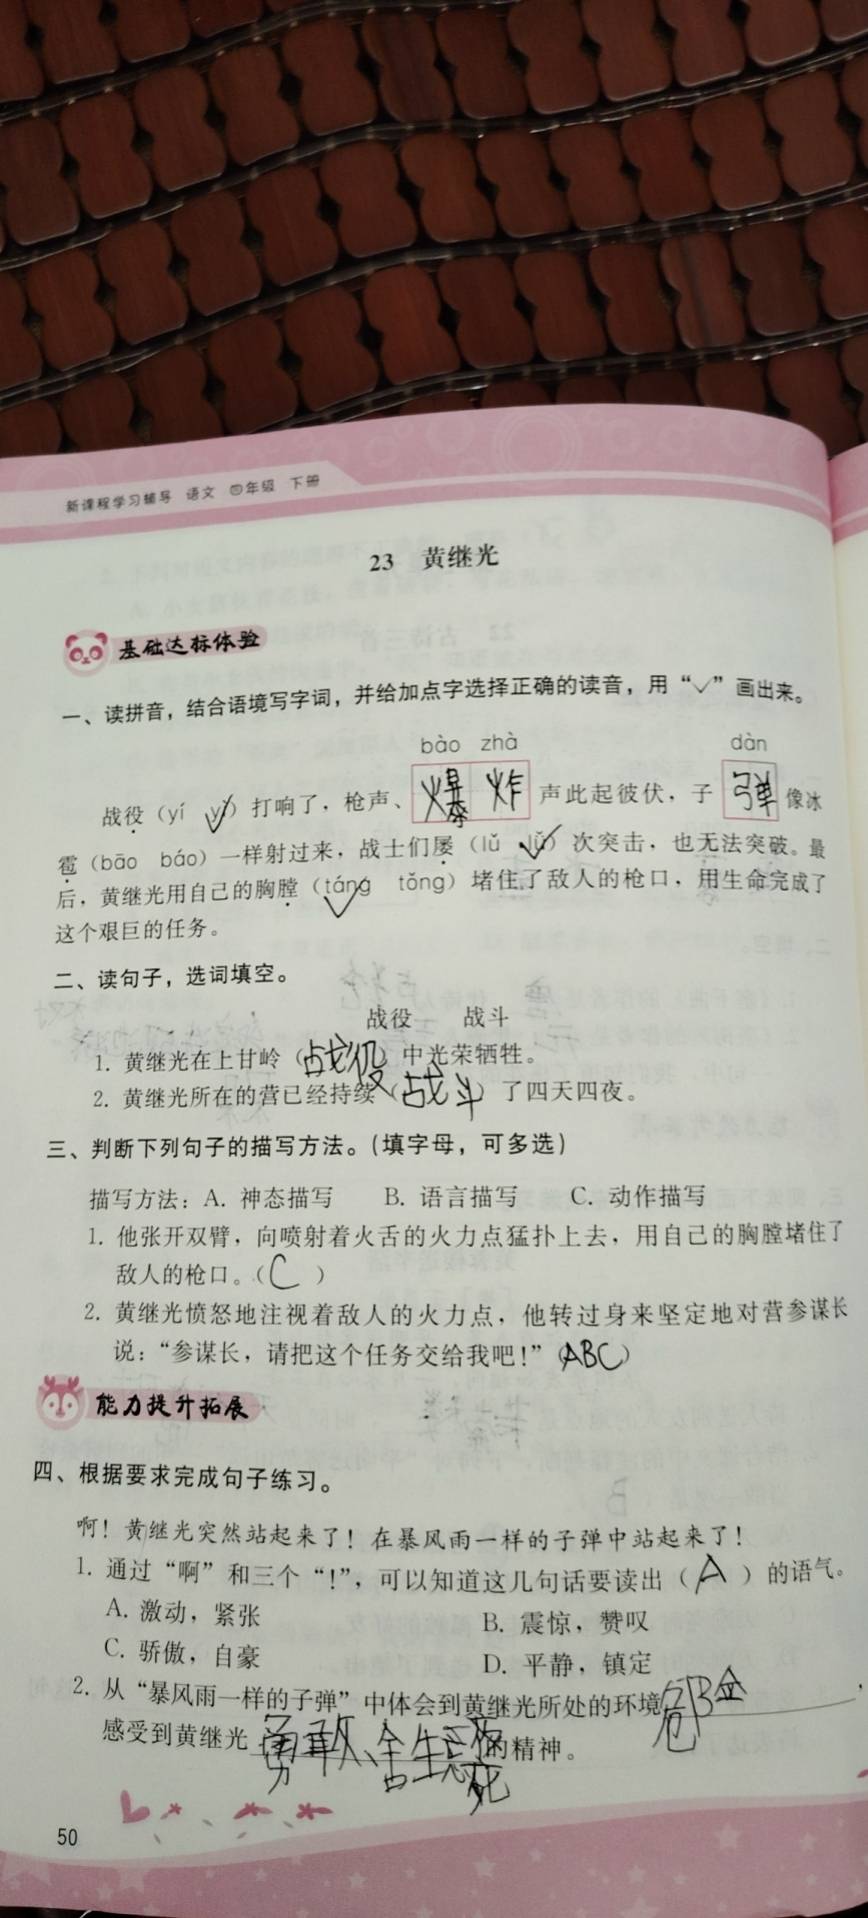 新课程学习辅导 语文 四年级 下册
23 黄继光
基础达标体验
一、读拼音，结合语境写字词，并给加点字选择正确的读音，用“√”画出来。
bào zhà dàn
战役（yí yì）打响了，枪声、爆炸声此起彼伏，子弹像冰
雹（bāo báo）一样射过来，战士们屡（lǔ lǚ）次突击，也无法突破。最
后，黄继光用自己的胸膛（táng tǒng）堵住了敌人的枪口，用生命完成了
这个艰巨的任务。
二、读句子，选词填空。
战役 战斗
1. 黄继光在上甘岭（战役）中光荣牺牲。
2. 黄继光所在的营已经持续（战斗）了四天四夜。
三、判断下列句子的描写方法。（填字母，可多选）
描写方法：A. 神态描写 B. 语言描写 C. 动作描写
1. 他张开双臂，向喷射着火舌的火力点猛扑上去，用自己的胸膛堵住了
敌人的枪口。（C）
2. 黄继光愤怒地注视着敌人的火力点，他转过身来坚定地对营参谋长
说：“参谋长，请把这个任务交给我吧！”（ABC）
能力提升拓展
四、根据要求完成句子练习。
啊！黄继光突然站起来了！在暴风雨一样的子弹中站起来了！
1. 通过“啊”和三个“！”，可以知道这几句话要读出（A）的语气。
A. 激动，紧张 B. 震惊，赞叹
C. 骄傲，自豪 D. 平静，镇定
2. 从“暴风雨一样的子弹”中体会到黄继光所处的环境危险，
感受到黄继光勇敢、舍生忘死的精神。
50